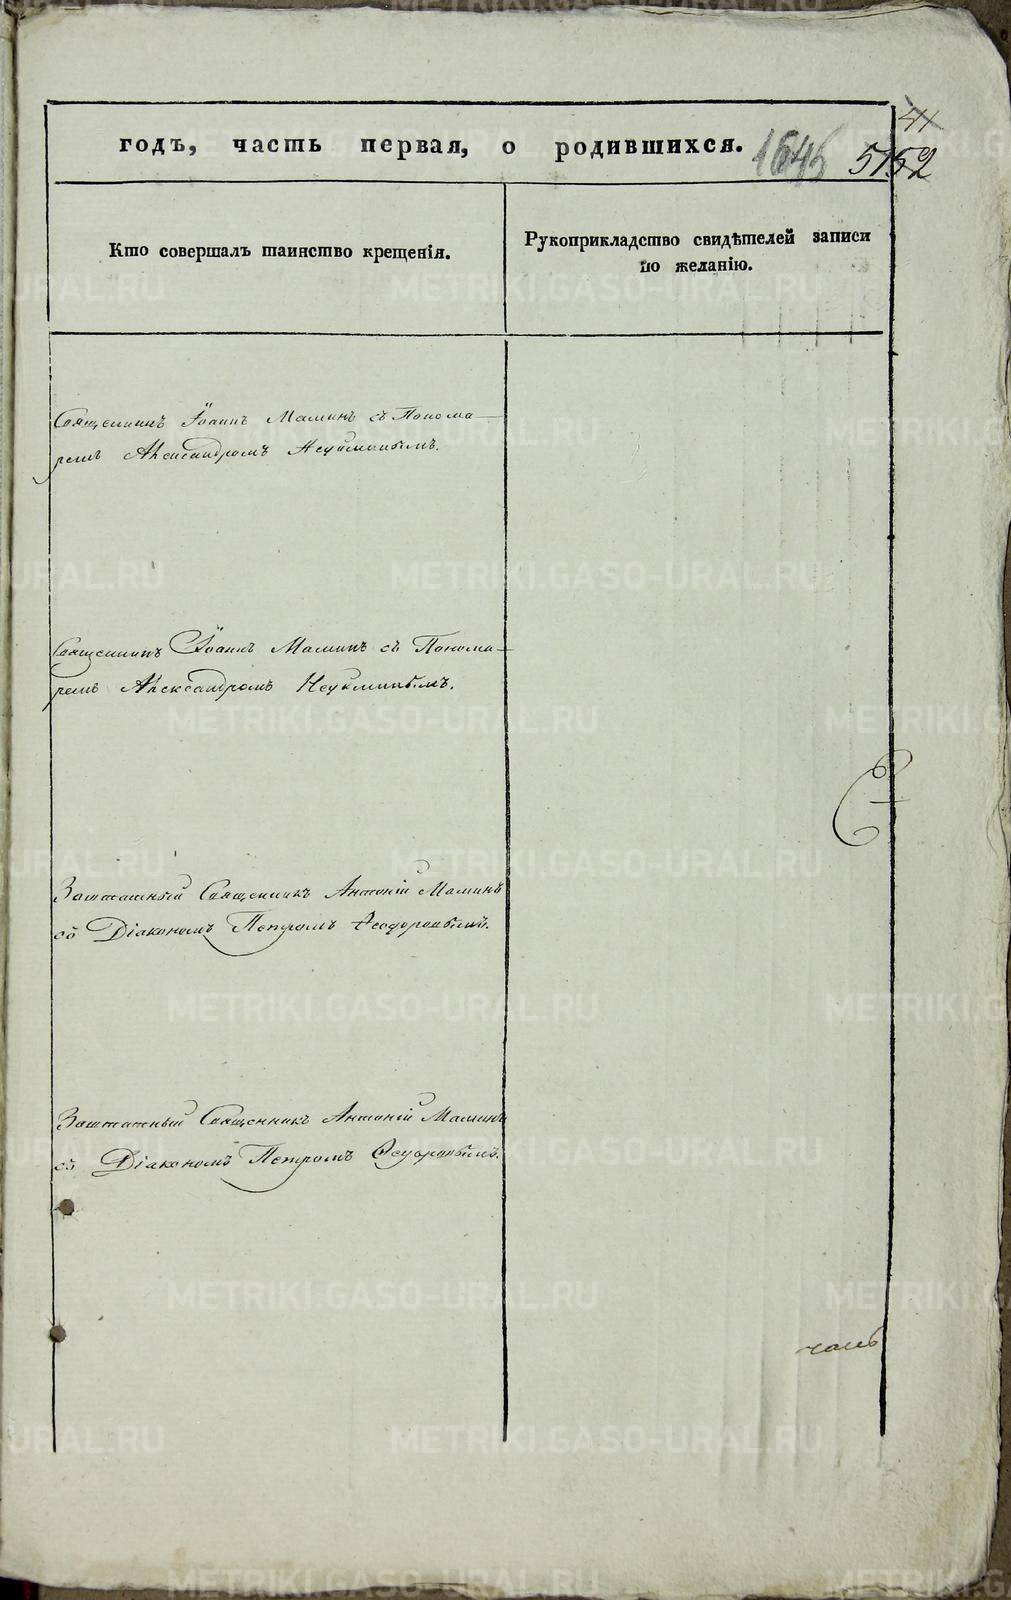 годъ, часть первая, о родившихся.
41
5152
Кто совершалъ таинство крещенія.
Рукоприкладство свидѣтелей записи
по желанію.
Священникъ Іоаннъ Маминъ съ Понома-
ремъ Александромъ Неуйминымъ.
Священникъ Іоаннъ Маминъ съ Понома-
ремъ Александромъ Неуйминымъ.
Заштатный Священникъ Антоній Маминъ
съ Діакономъ Петромъ Ѳеодоровымъ.
Заштатный Священникъ Антоній Маминъ
съ Діакономъ Петромъ Ѳеодоровымъ.
METRIKI.GASO-URAL.RU